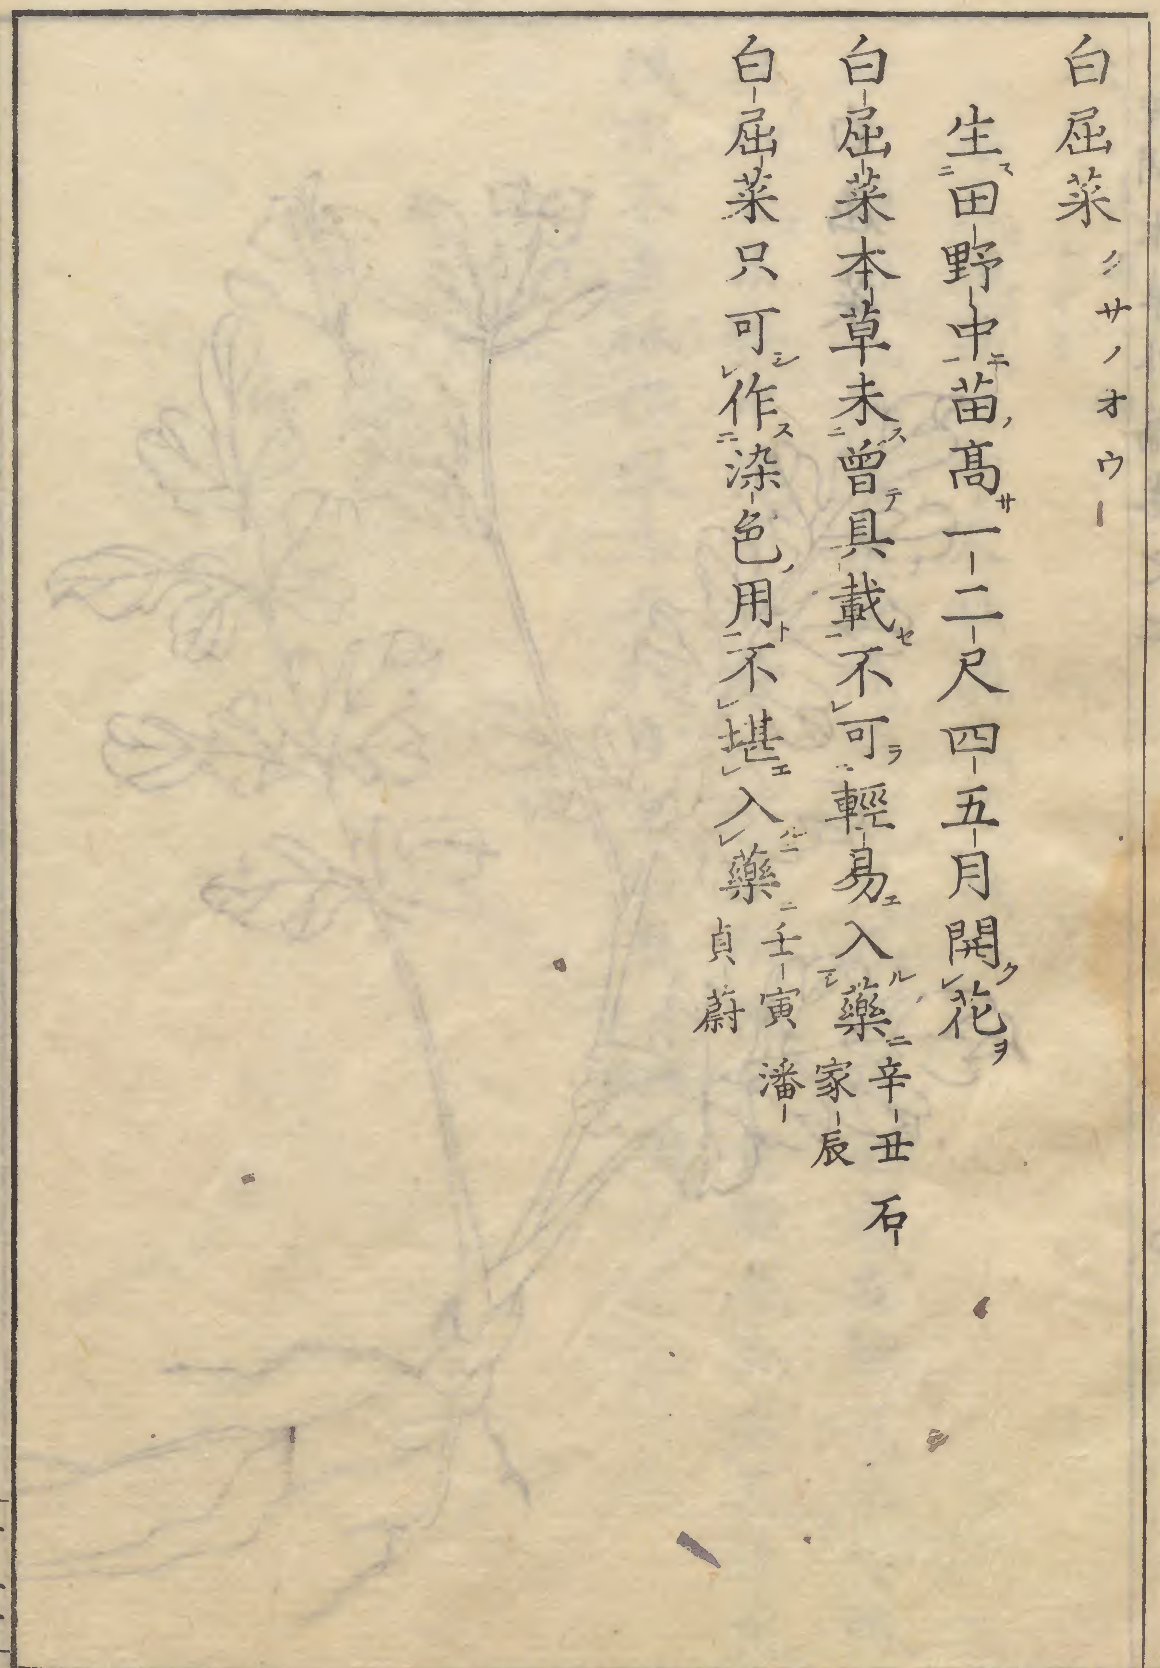 白屈菜 クサノオウ
生田野中苗高一二尺四五月開花
白屈菜本草未曾具載不可輕易入藥 辛丑 石家辰
白屈菜只可作染色用不堪入藥 壬寅 潘貞蔚